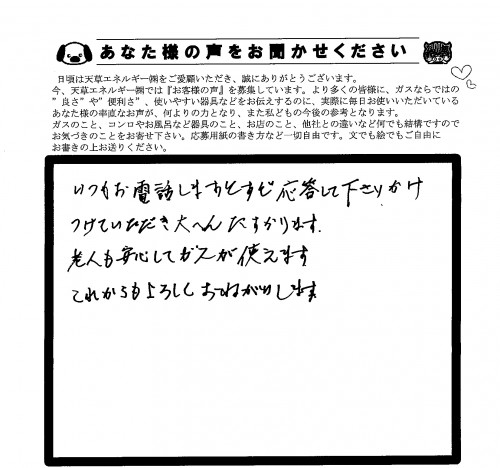 あなた様の声をお聞かせください
日頃は天草エネルギー㈱をご愛顧いただき、誠にありがとうございます。
今、天草エネルギー㈱では『お客様の声』を募集しています。より多くの皆様に、ガスならではの
”良さ”や”便利さ”、使いやすい器具などをお伝えするのに、実際に毎日お使いいただいている
あなた様の率直なお声が、何よりの力となり、また私どもの今後の参考となります。
ガスのこと、コンロやお風呂など器具のこと、お店のこと、他社との違いなど何でも結構ですので
お気づきのことをお寄せ下さい。応募用紙の書き方など一切自由です。文でも絵でもご自由に
お書きの上お送りください。
いつもお電話しますとすぐ応答して下さりかけ
つけていただき大へんたすかります.
老人も安心してガスが使えます
これからもよろしくおねがいします